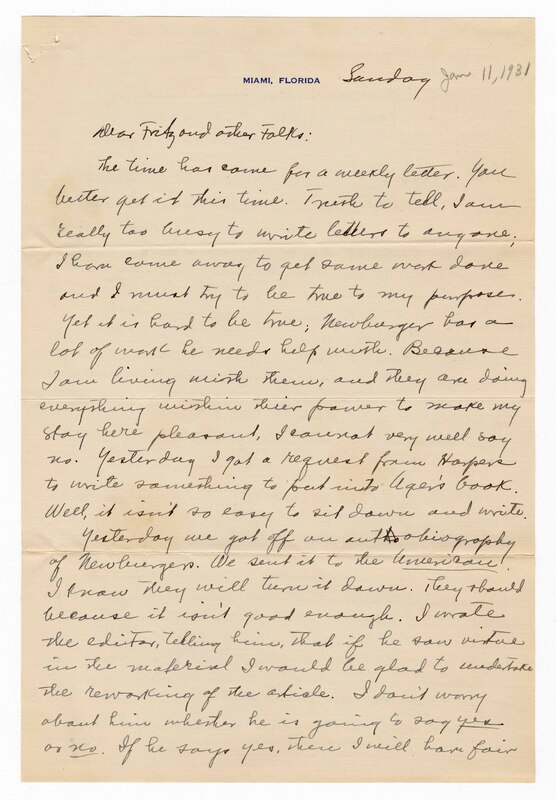 MIAMI, FLORIDA Sunday Jan 11, 1931
Dear Fritz and other Folks:
The time has come for a weekly letter. You
better get it this time. Truth to tell, I am
really too busy to write letters to anyone;
I have come away to get some work done
and I must try to be true to my purposes.
Yet it is hard to be true; Newburger has a
lot of work he needs help with. Because
I am living with them, and they are doing
everything within thier power to make my
stay here pleasant, I cannot very well say
no. Yesterday I got a request from Harpers
to write something to put into Ager's book.
Well, it isn't so easy to sit down and write.
Yesterday we got off an autobiography
of Newburgers. We sent it to the American.
I know they will turn it down. They should
because it isn't good enough. I wrote
the editor, telling him, that if he saw virtue
in the material I would be glad to undertake
the reworking of the article. I don't worry
about him whether he is going to say yes
or no. If he says yes, then I will have fair